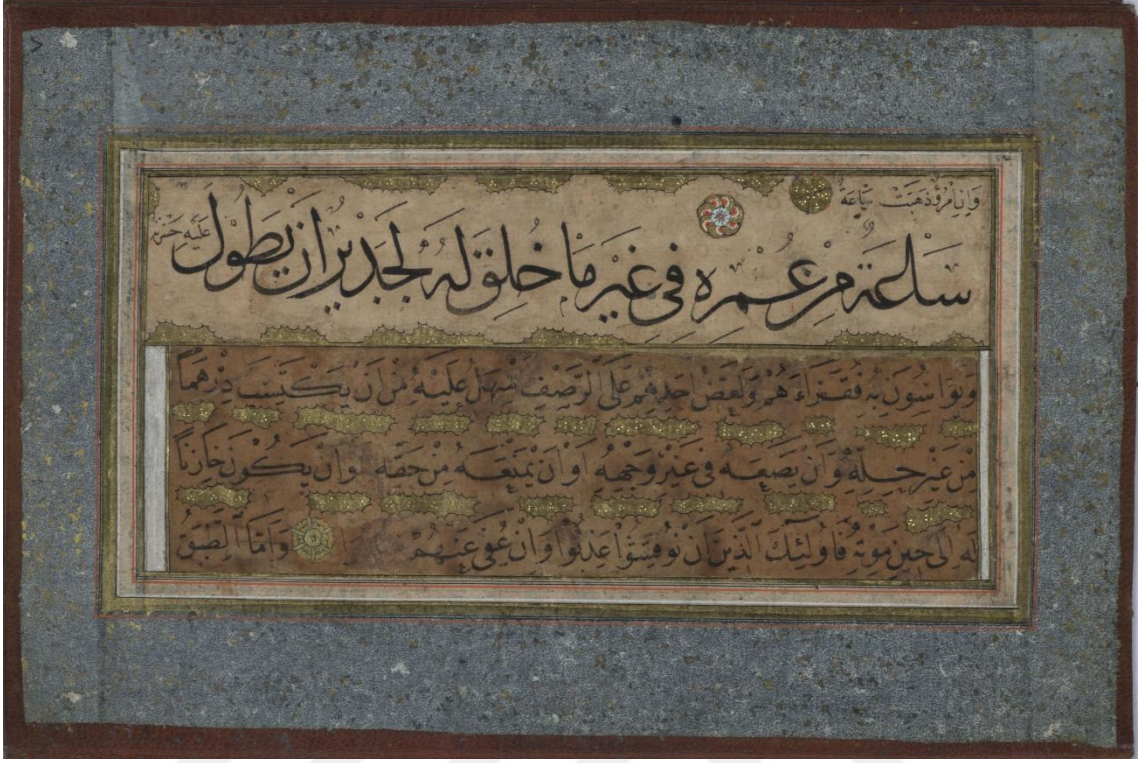 وان امرؤ ذهبت ساعة
ساعة من عمره في غير ما خلق له لجدير ان يطول
عليه حسرته
ويواسون به فقراءهم ولعض احدهم على الرضف سهل عليه من ان يكتسب درهما
من غير حله وان يضعه في غير وجهه او ان يمنعه من حقه وان يكون خازنا
له الى حين موته فاولئك الذين ان نوقشوا عذبوا وان عفي عنهم
واما الطبق